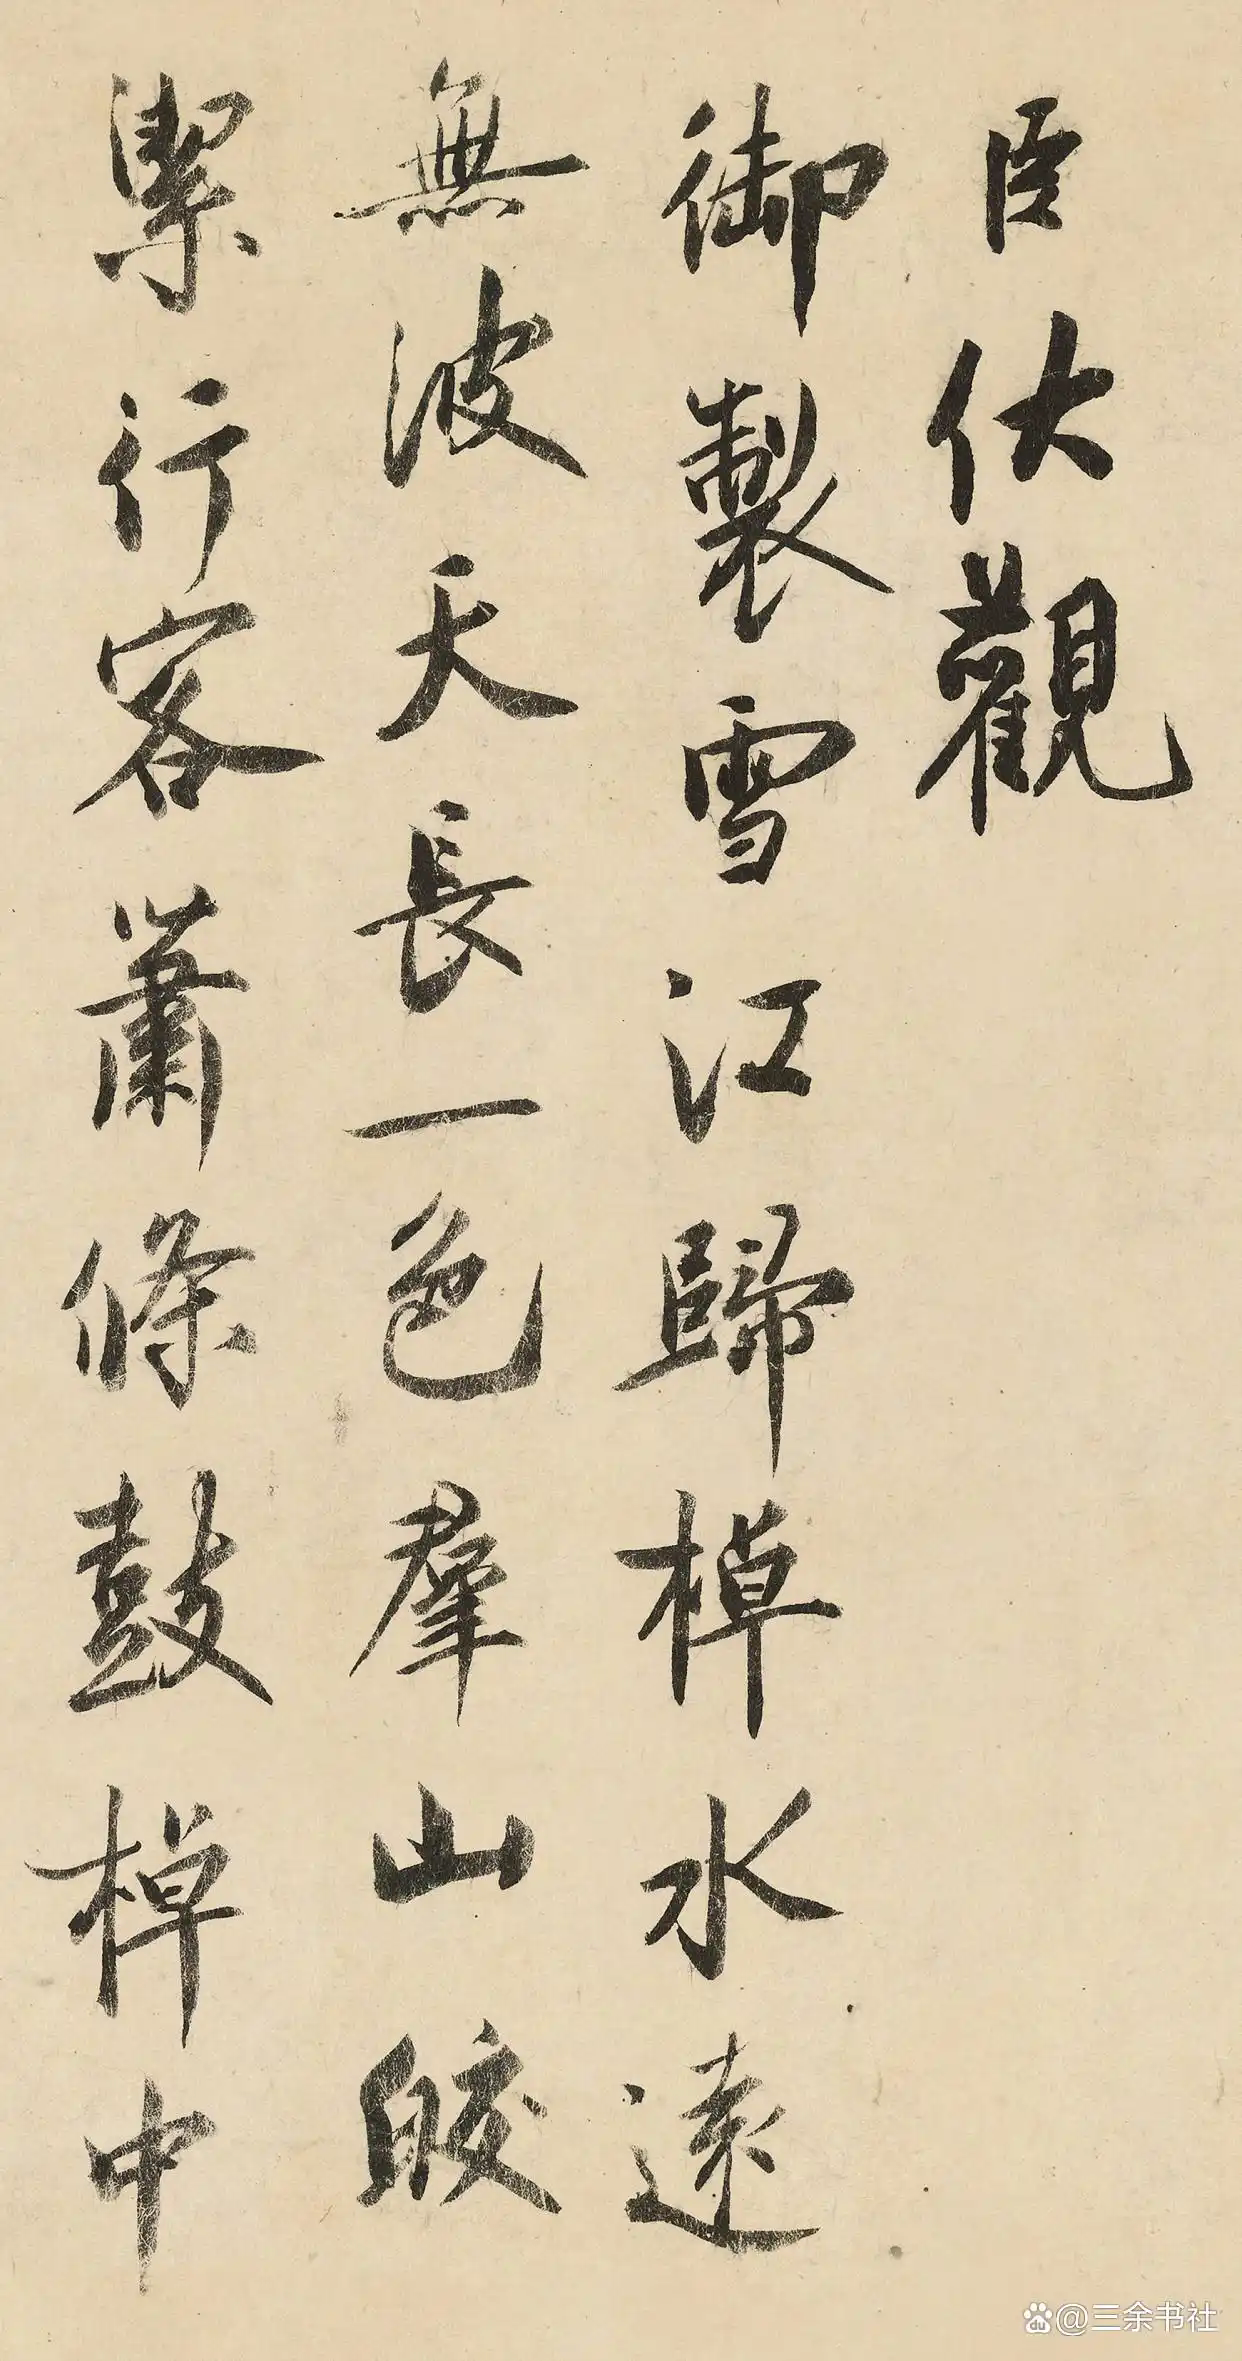 臣伏觀
御製雪江歸棹水遠
無波天長一色羣山皎
潔行客蕭條鼓棹中
du @三余书社